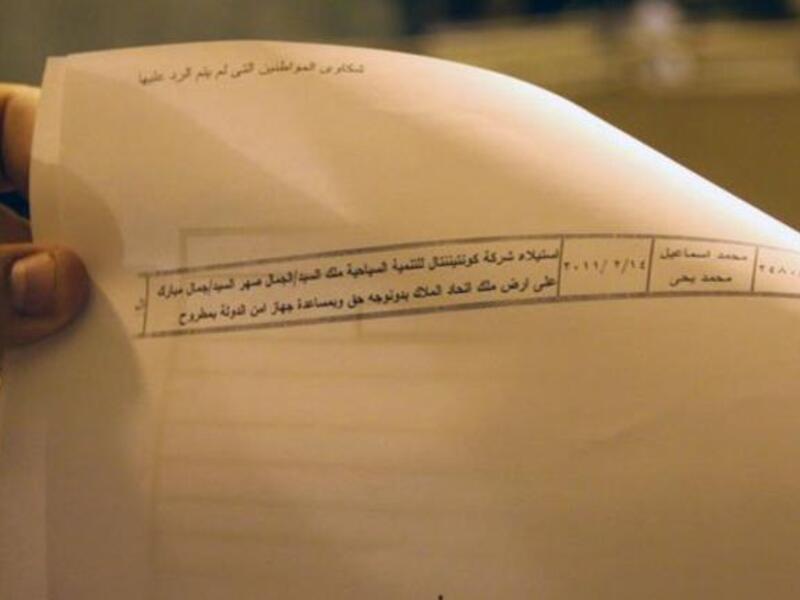 شكاوى المواطنين التى لم يتم الرد عليها
محمد اسماعيل
محمد يحى
٢٠١١/٢/١٤
استيلاء شركة كونتيننتال للتنمية السياحية ملك السيد/الجمال صهر السيد/جمال مبارك
على ارض ملك اتحاد الملاك بدونوجه حق وبمساعدة جهاز امن الدولة بمطروح